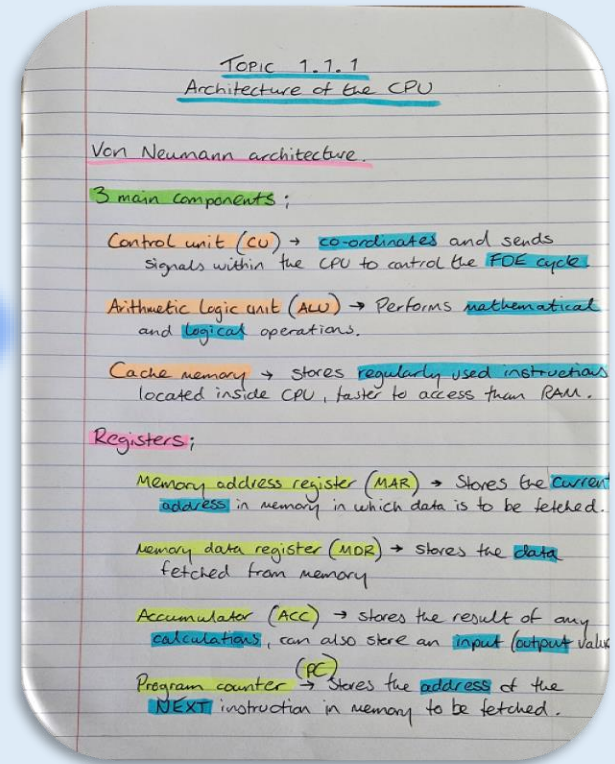 TOPIC 1.1.1
Architecture of the CPU
Von Neumann architecture.
3 main components;
Control unit (CU) → co-ordinates and sends
signals within the CPU to control the FDE cycle.
Arithmetic Logic unit (ALU) → Performs mathematical
and logical operations.
Cache memory → stores regularly used instructions
located inside CPU, faster to access than RAM.
Registers;
Memory address register (MAR) → Stores the current
address in memory in which data is to be fetched.
Memory data register (MDR) → stores the data
fetched from memory
Accumulator (ACC) → stores the result of any
calculations, can also store an input/output value
(PC)
Program counter → Stores the address of the
NEXT instruction in memory to be fetched.